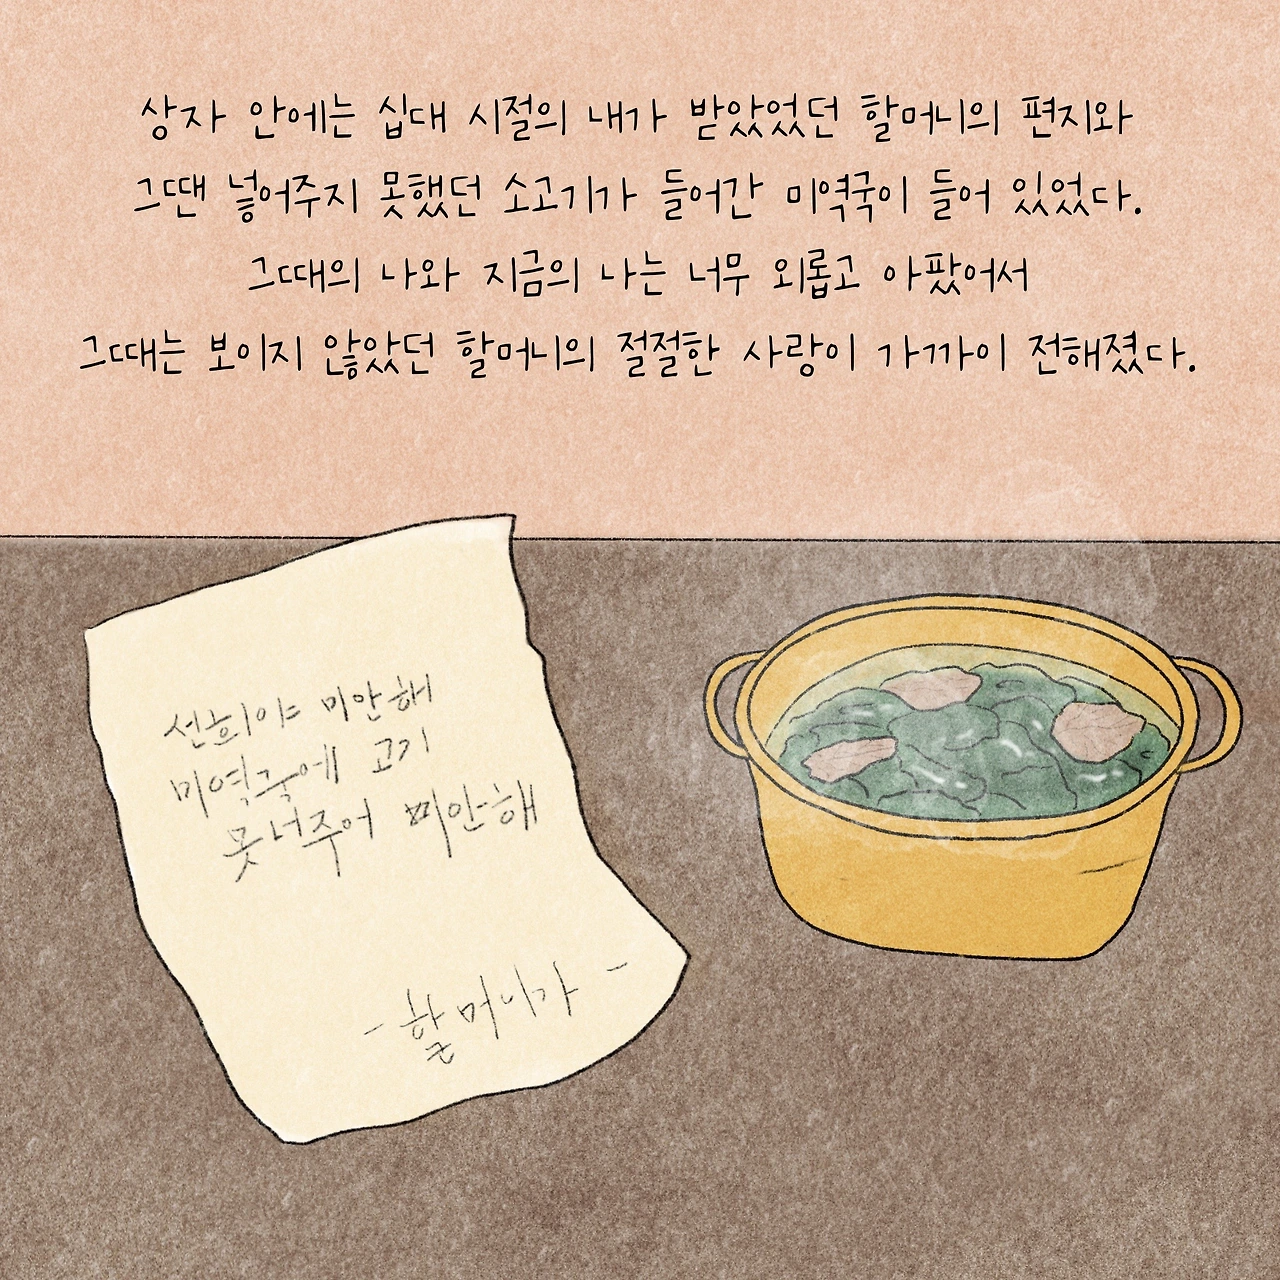 상자 안에는 십대 시절의 내가 받았었던 할머니의 편지와
그땐 넣어주지 못했던 소고기가 들어간 미역국이 들어 있었다.
그때의 나와 지금의 나는 너무 외롭고 아팠어서
그때는 보이지 않았던 할머니의 절절한 사랑이 가까이 전해졌다.
선희야 미안해
미역국에 고기
못너주어 미안해
- 할머니가 -